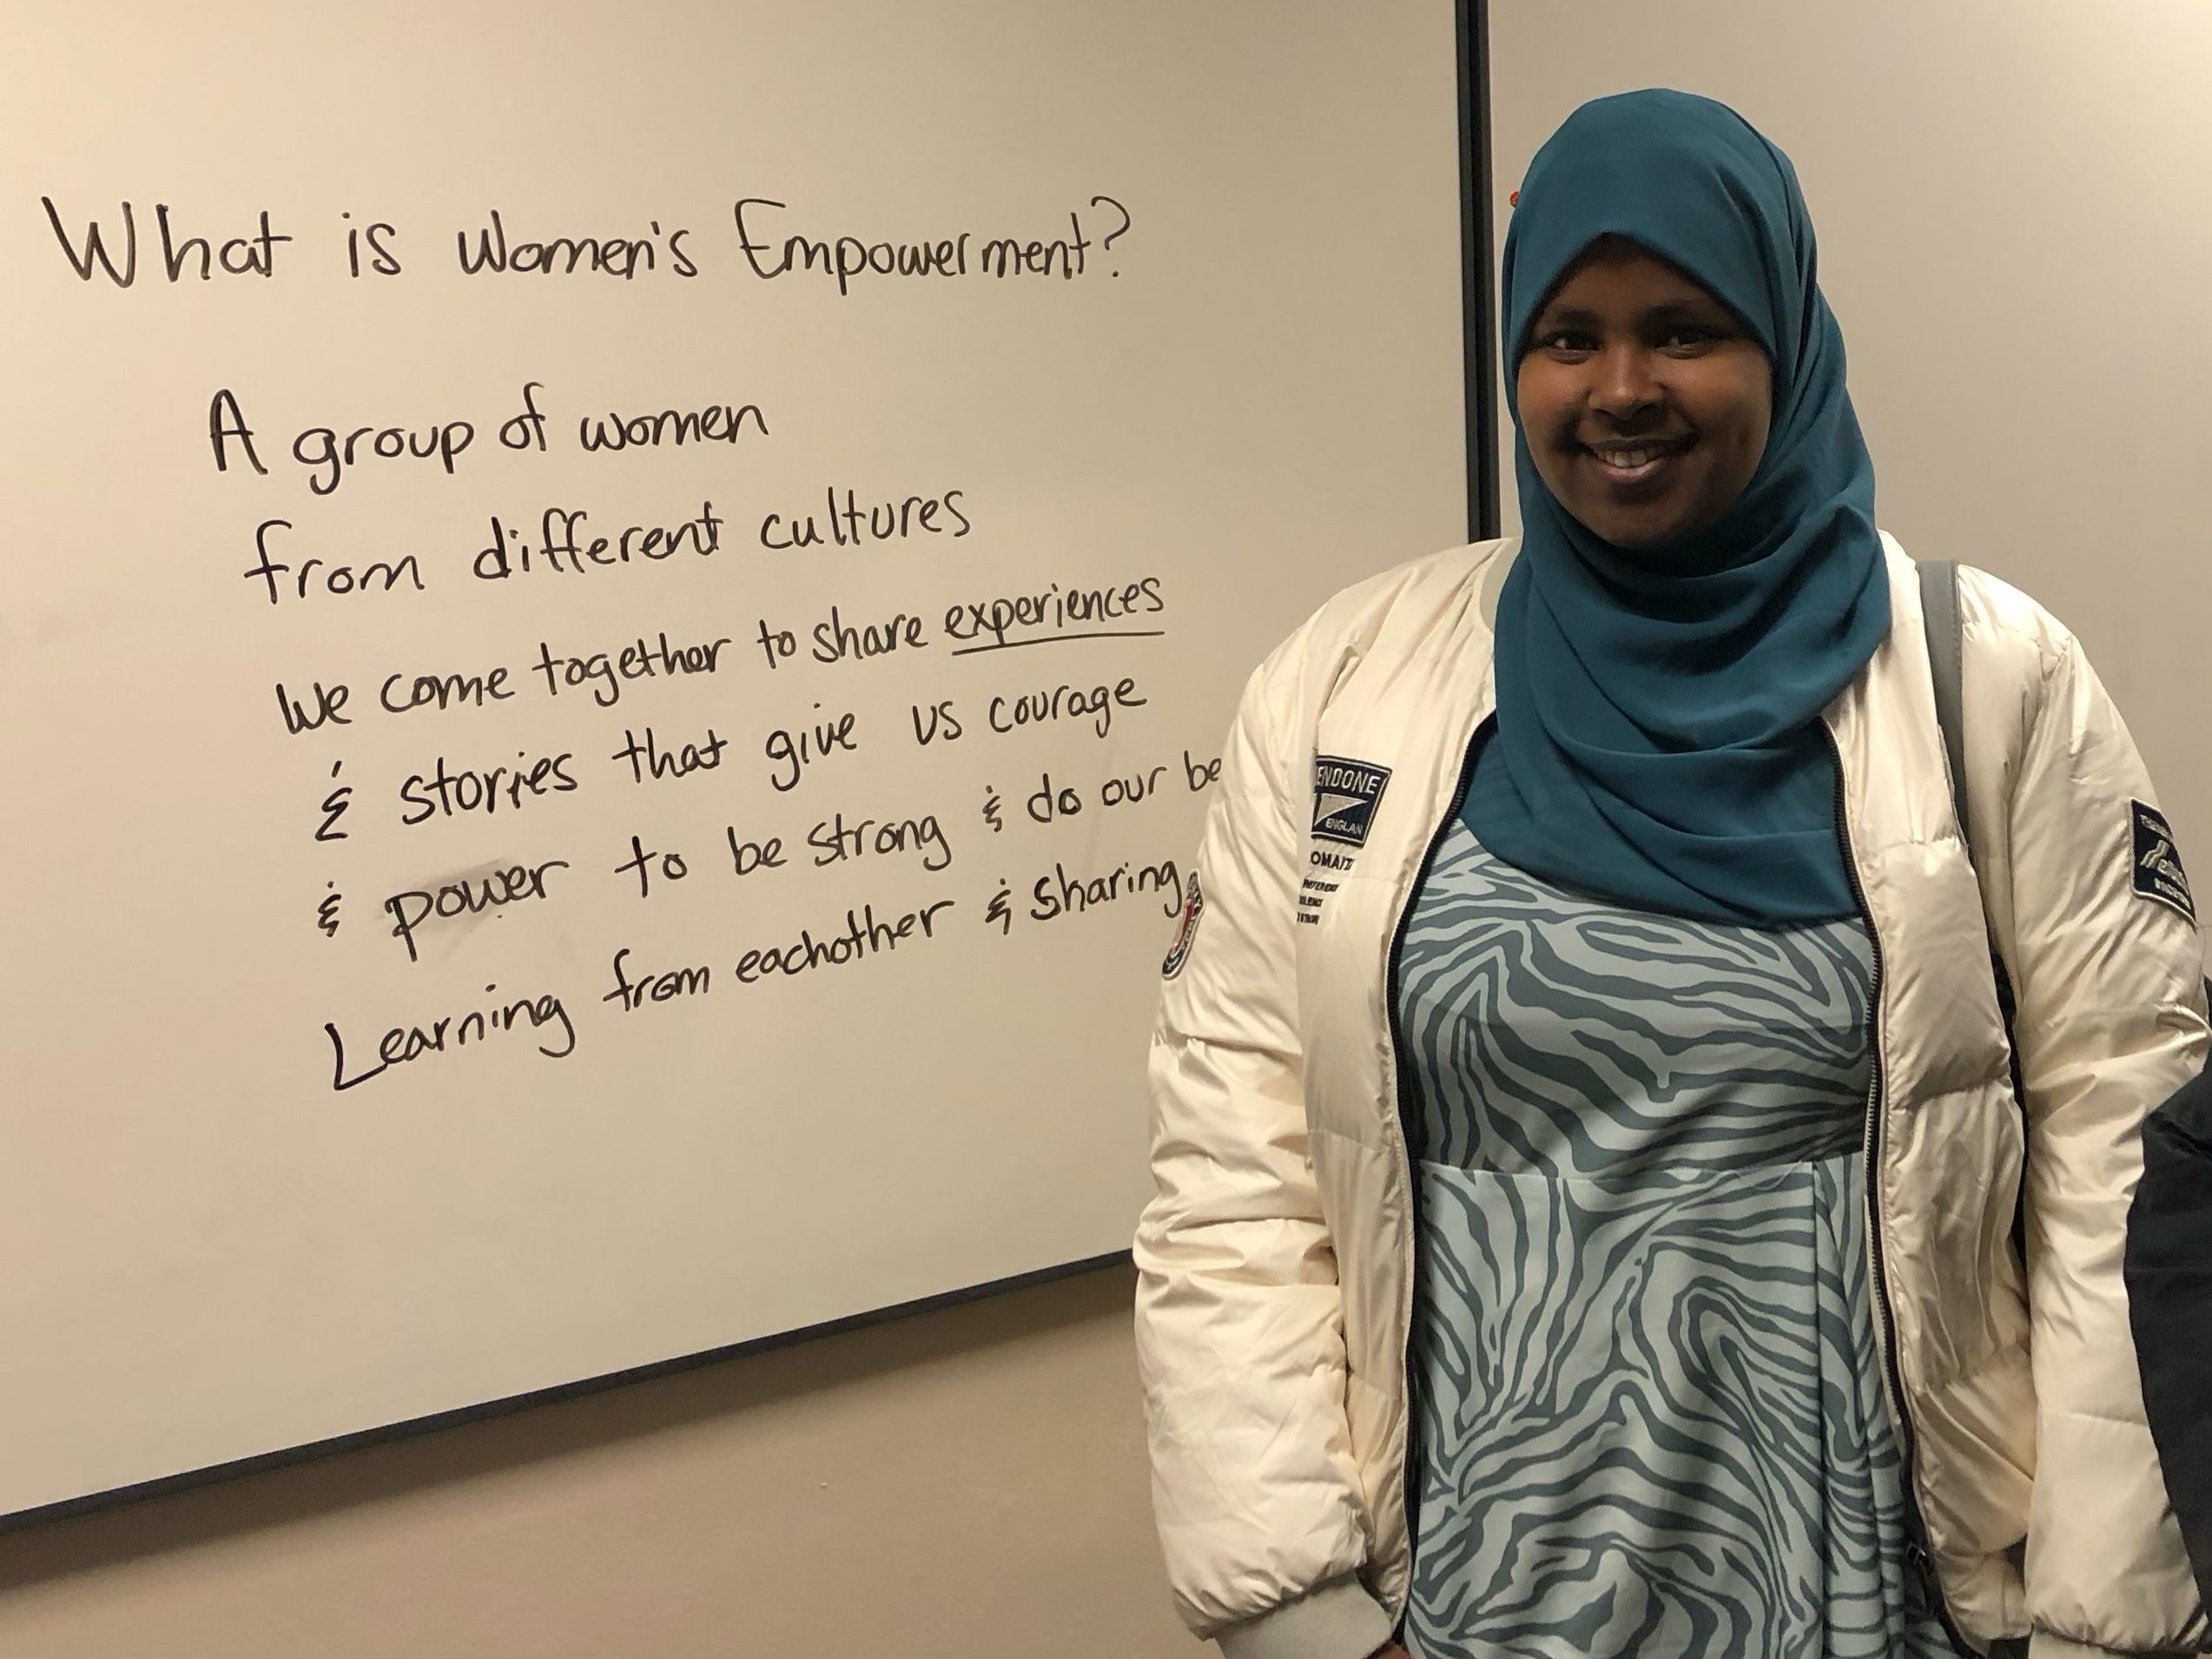 What is Women's Empowerment?
A group of women
from different cultures
We come together to share experiences
& stories that give us courage
& power to be strong & do our be
Learning from eachother & sharing
ENDONE
ENGLAN
OMAIT